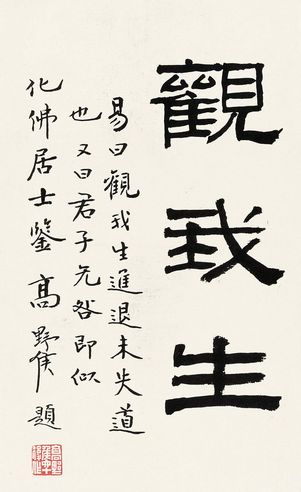 觀我生
易曰觀我生進退未失道
也又曰君子无咎即似
化佛居士鑒 高野侯題